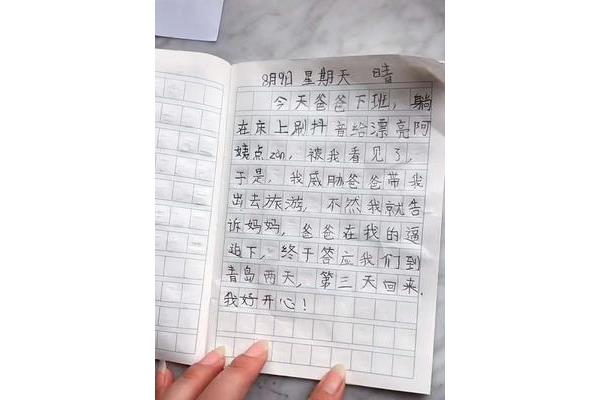 8月9日 星期天 晴
今天爸爸下班，躺
在床上刷抖音给漂亮阿
姨点zan，被我看见了，
于是，我威胁爸爸带我
出去旅游，不然我就告
诉妈妈，爸爸在我的逼
迫下，终于答应我们到
青岛两天，第三天回来，
我好开心！